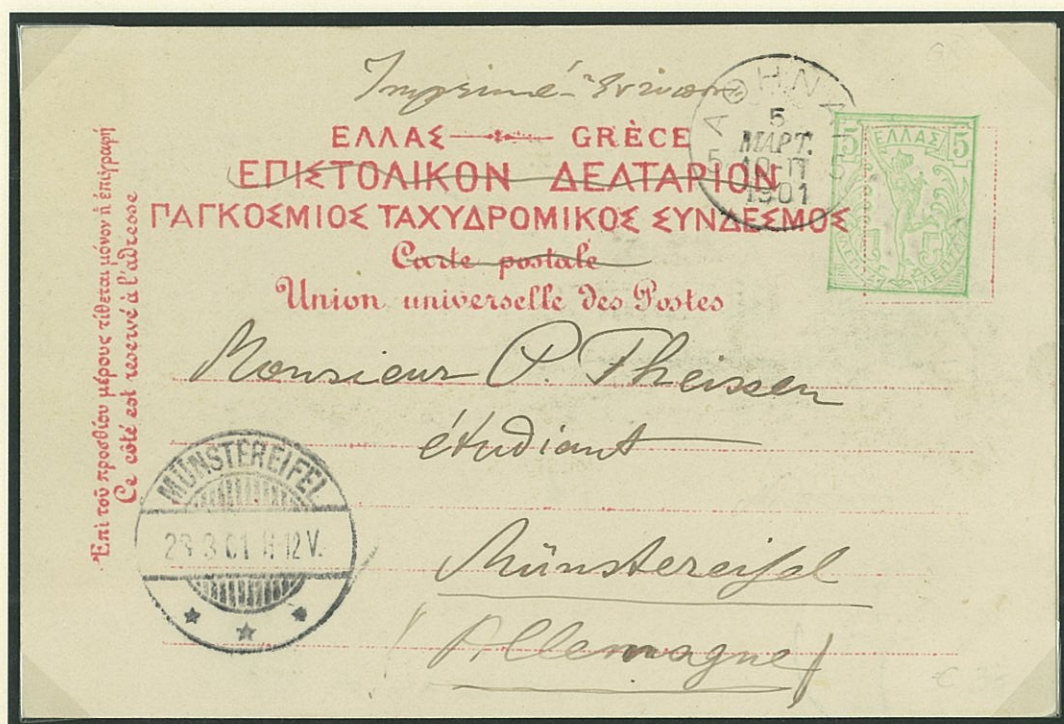 Imprimé - Ἔντυπον
ΕΛΛΑΣ GRÈCE
ΕΠΙΣΤΟΛΙΚΟΝ ΔΕΛΤΑΡΙΟΝ
ΠΑΓΚΟΣΜΙΟΣ ΤΑΧΥΔΡΟΜΙΚΟΣ ΣΥΝΔΕΣΜΟΣ
Carte postale
Union universelle des Postes
ΑΘΗΝΑΙ
5
ΜΑΡΤ.
1901
5 ΕΛΛΑΣ 5
ΛΕΠΤΑ
Ἐπὶ τοῦ προσθίου μέρους τίθεται μόνον ἡ ἐπιγραφή
Ce côté est reservé à l'adresse
Monsieur P. Theissen
étudiant
Münstereifel
(Allemagne)
MÜNSTEREIFEL
3 01 12 V.